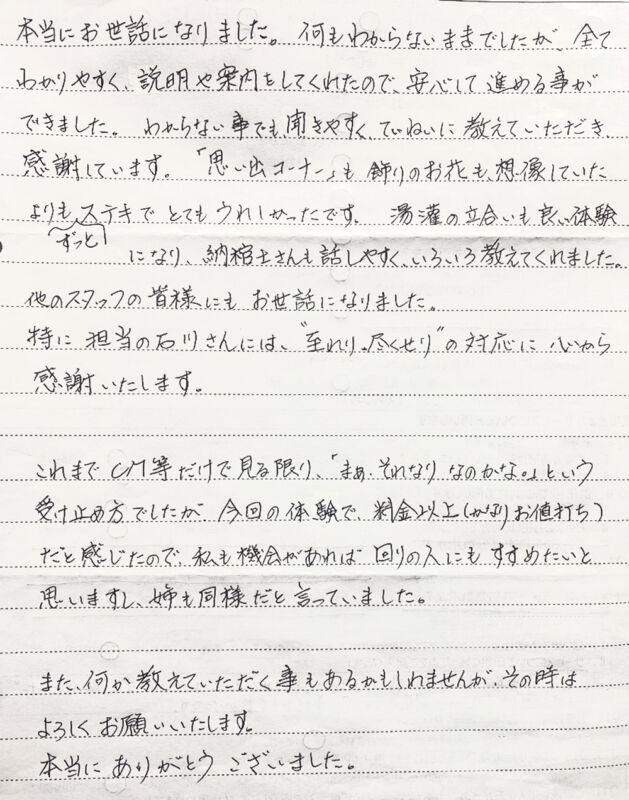 本当にお世話になりました。何もわからないままでしたが、全て
わかりやすく、説明や案内をしてくれたので、安心して進める事が
できました。わからない事でも聞きやすく、ていねいに教えていただき
感謝しています。「思い出コーナー」も飾りのお花も、想像していた
よりもステキでとてもうれしかったです。湯灌の立合いも良い体験
ずっと
になり、納棺士さんも話しやすく、いろいろ教えてくれました。
他のスタッフの皆様にもお世話になりました。
特に担当の石川さんには、“至れり。尽くせり”の対応に心から
感謝いたします。
これまでCM等だけで見る限り、「まぁ、それなりなのかな。」という
受け止め方でしたが、今回の体験で、料金以上(かなりお値打ち)
だと感じたので、私も機会があれば回りの人にもすすめたいと
思いますし、姉も同様だと言っていました。
また、何か教えていただく事もあるかもしれませんが、その時は
よろしくお願いいたします。
本当にありがとうございました。